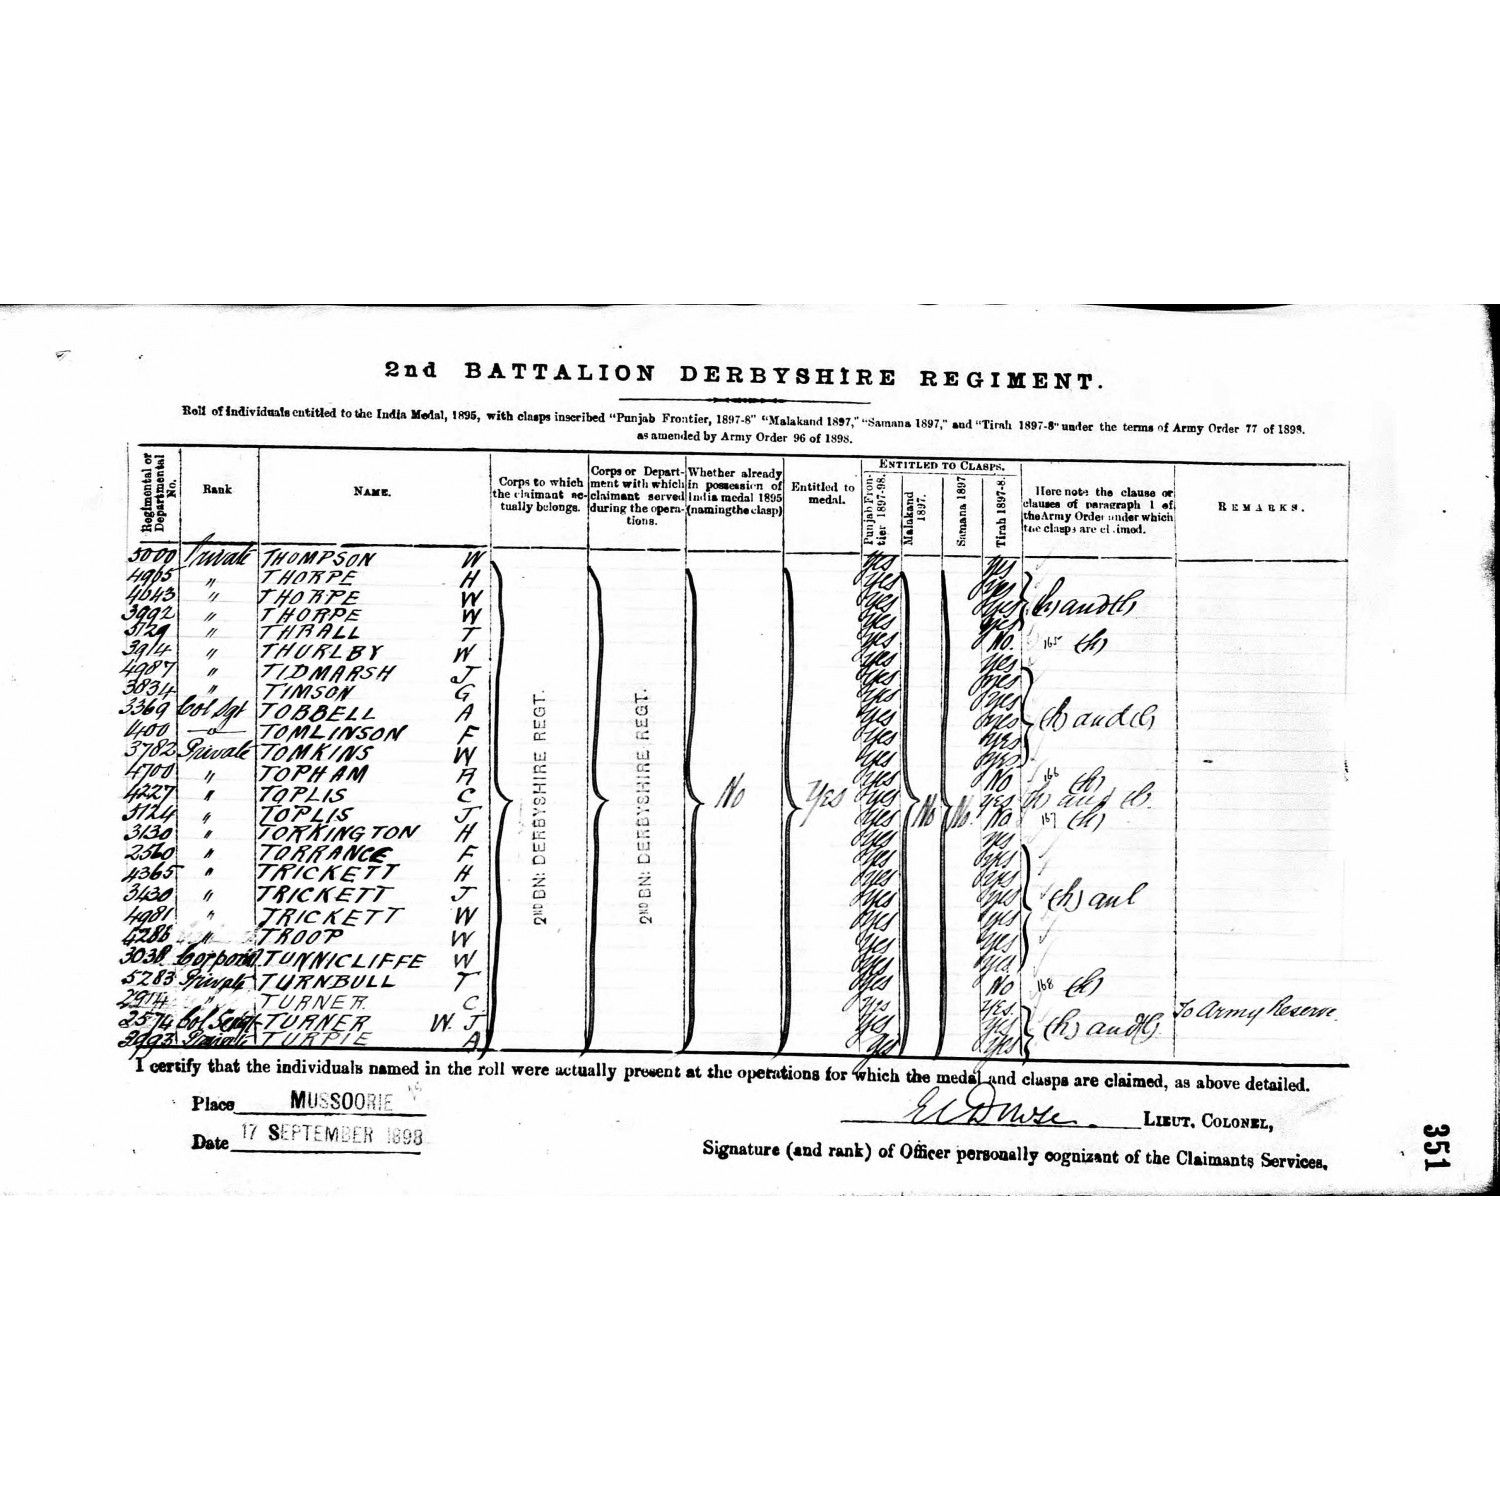 2nd BATTALION DERBYSHIRE REGIMENT.
Roll of individuals entitled to the India Medal, 1895, with clasps inscribed "Punjab Frontier, 1897-8" "Malakand 1897," "Samana 1897," and "Tirah 1897-8" under the terms of Army Order 77 of 1898.
as amended by Army Order 96 of 1898.
Regimental or Departmental No.
Rank
NAME.
Corps to which the claimant actually belongs.
Corps or Department with which claimant served during the operations.
Whether already in possession of India medal 1895 (naming the clasp)
Entitled to medal.
ENTITLED TO CLASPS.
Punjab Frontier 1897-98.
Malakand 1897.
Samana 1897
Tirah 1897-8.
Here note the clause or clauses of paragraph 1 of the Army Order under which the clasps are claimed.
REMARKS.
5000 Private THOMPSON W Yes Yes
4965 " THORPE H Yes Yes
4643 " THORPE W Yes Yes (h) and
3992 " THORPE W Yes Yes
5129 " THRALL T Yes No. 165 (h)
3914 " THURLBY W Yes Yes
4987 " TIDMARSH J Yes Yes
3834 " TIMSON G Yes Yes
3369 Col Sgt TOBBELL A Yes Yes (h) and
1400 TOMLINSON F Yes Yes
3782 Private TOMKINS W Yes Yes
4700 " TOPHAM A Yes No 166 (h)
4227 " TOPLIS C Yes Yes (h) and
5124 " TOPLIS J Yes No 167 (h)
3130 " TORKINGTON H Yes Yes
2560 " TORRANCE F Yes Yes
4365 " TRICKETT H Yes Yes
3430 " TRICKETT J Yes Yes (h) and
4981 " TRICKETT W Yes Yes
4286 " TROOP W Yes Yes
3038 Corporal TUNNICLIFFE W Yes Yes
5283 Private TURNBULL T Yes No 168 (h)
2914 " TURNER C Yes Yes. To Army Reserve.
2574 Col Sergt TURNER W. J Yes Yes (h) and
3993 Private TURPIE A Yes Yes
2ND BN: DERBYSHIRE REGT.
2ND BN: DERBYSHIRE REGT.
No
Yes
No
No.
I certify that the individuals named in the roll were actually present at the operations for which the medal and clasps are claimed, as above detailed.
Place MUSSOORIE
Date 17 SEPTEMBER 1898
LIEUT. COLONEL,
Signature (and rank) of Officer personally cognizant of the Claimants Services.
351